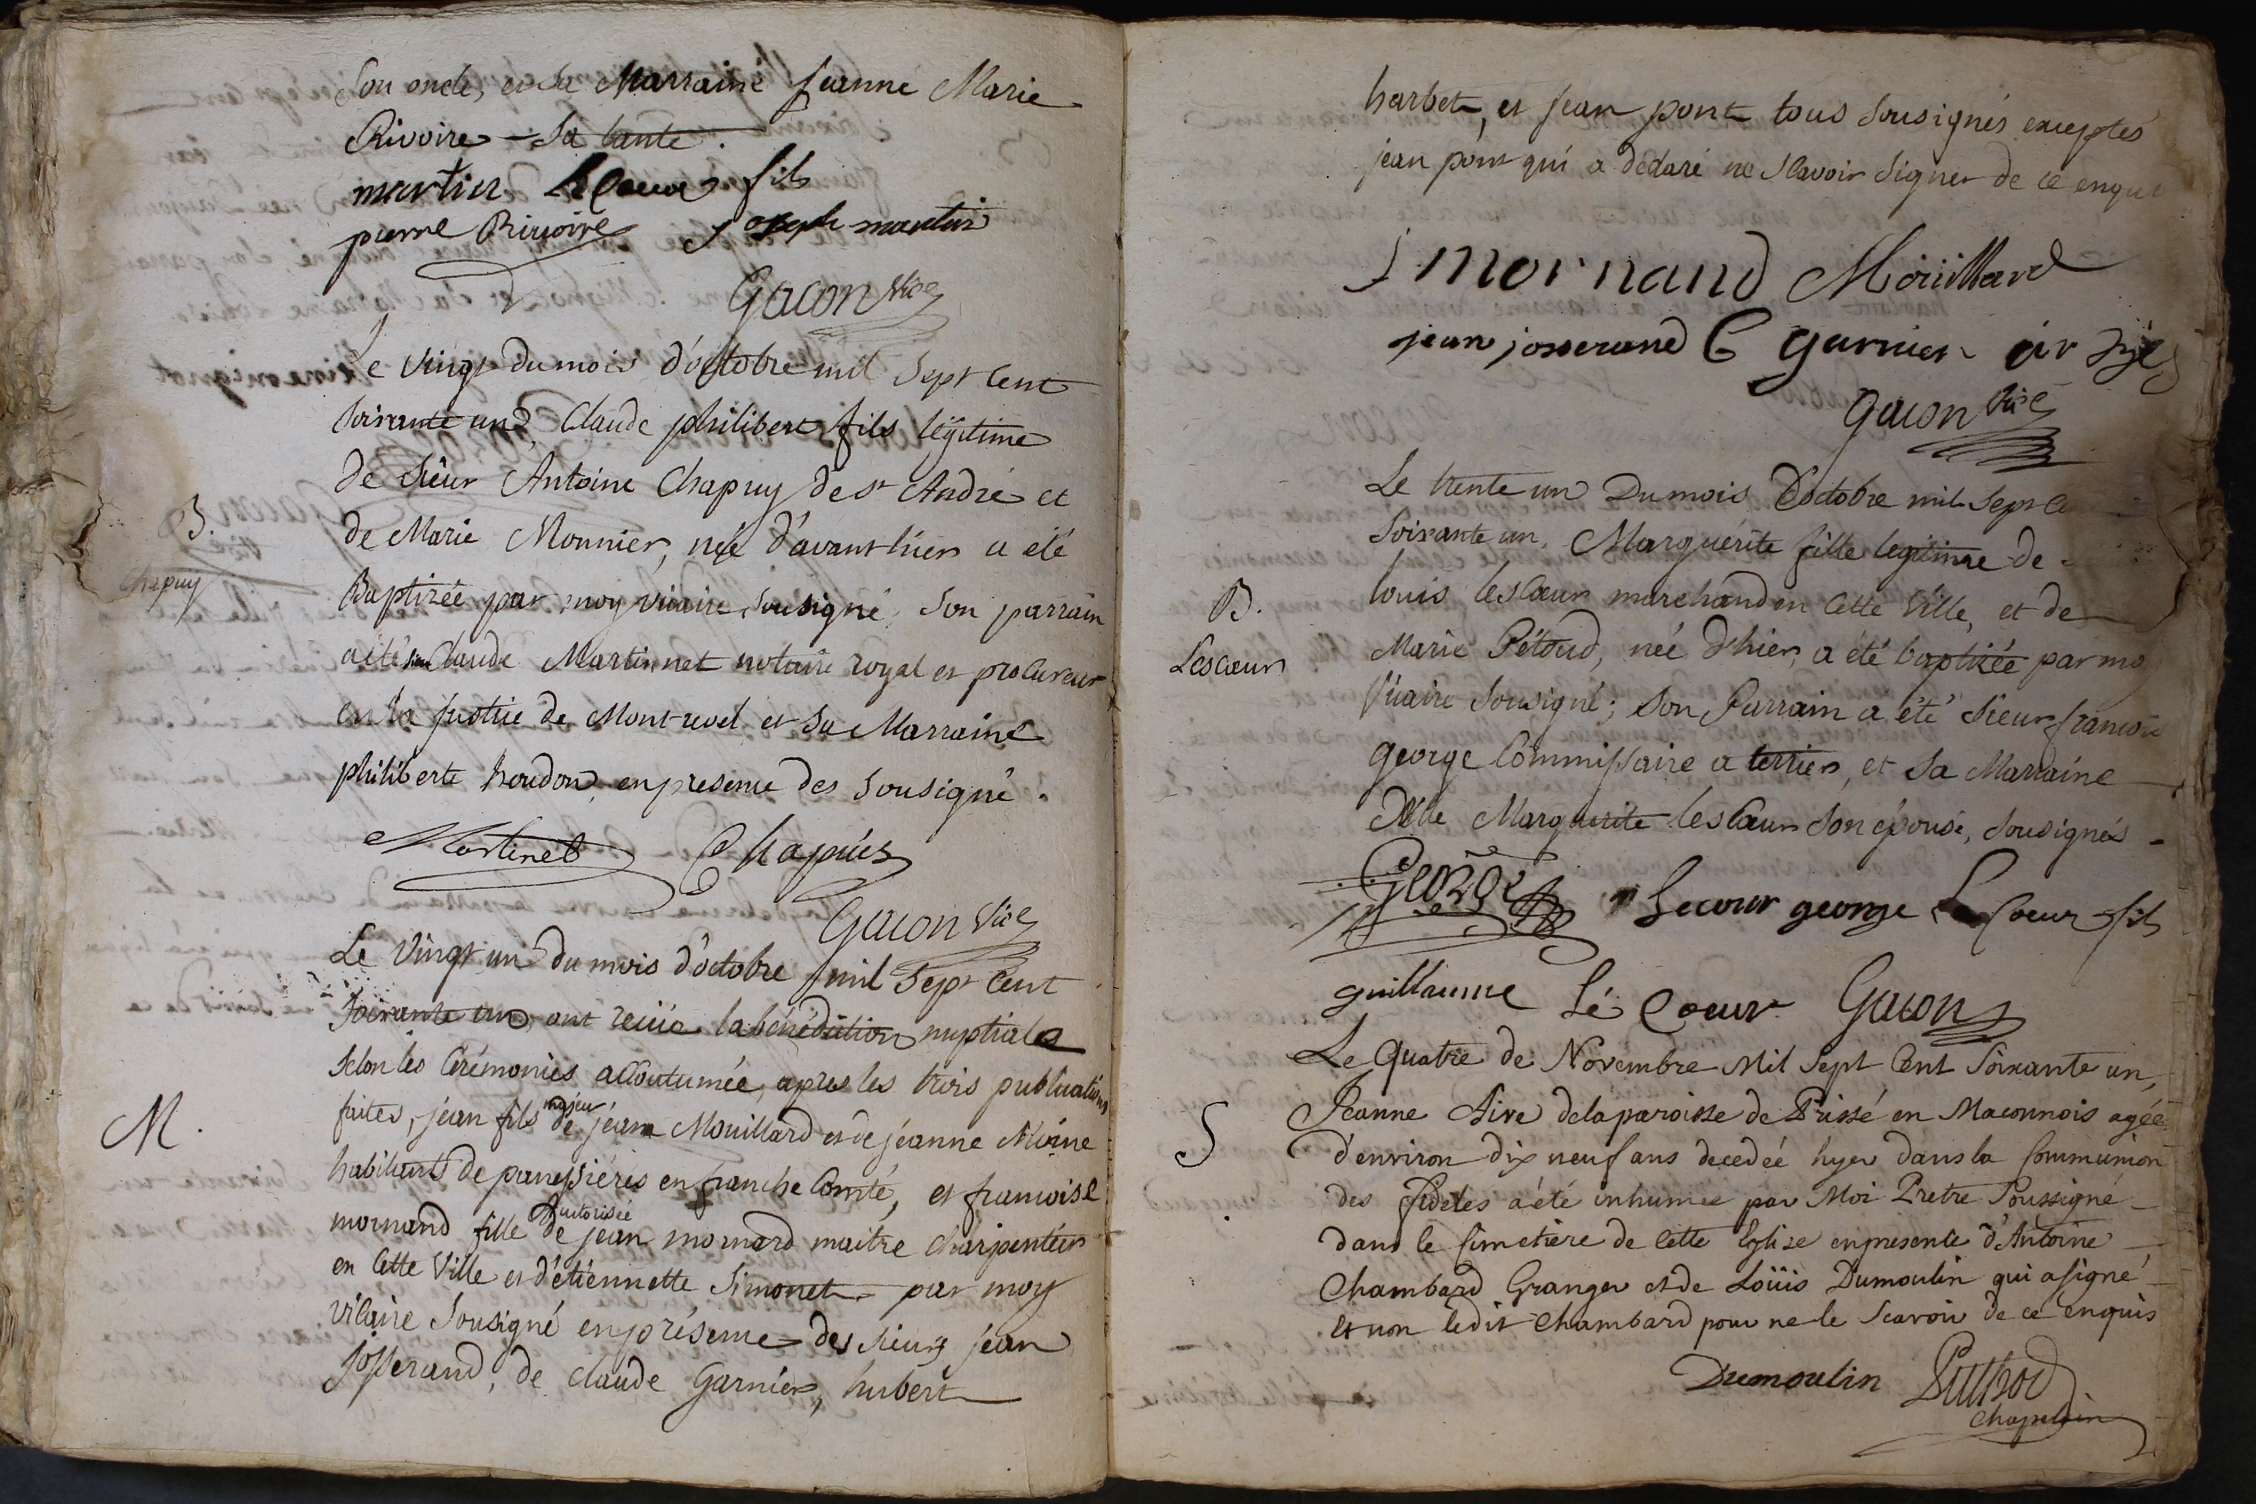 Son oncle, et Sa Marraine Jeanne Marie
Rivoire Sa tante.
martin LeCoeur fils
pierre Rivoire Joseph martin
Gacon Vic
Le vingt du mois d'octobre mil Sept Cent
Soixante un, Claude philibert fils légitime
de Sieur Antoine Chapuy de st André et
de Marie Monnier, née d'avant hier a été
B.
Chapuy
Baptizée par moy vicaire Sousigné, Son parrain
a été sieur Claude Martinnet notaire royal et procureur
en la justice de Mont-revel et Sa Marraine
philiberte Boudon en présence des Sousigné.
Martinet Chapuis
Gacon Vic
Le Vingt un du mois d'octobre mil Sept Cent
Soixante un, ont reçüe la bénédiction nuptiale
Selon les Cérémonies accoutumée, après les trois publications
M.
faites, jean fils majeur de jean Mouillard et de jéanne Moine
habitants de en franche Comté, et francoise
mornand fille Autorisée de jean mornand maitre charpentier
en Cette Ville et d'étiennette Simonet par moy
Vicaire Sousigné en présence des Sieurs jean
josserand, de claude Garnier, hubert
harbet, et jean pont tous Sousignés exceptés
jean pont qui a déclaré ne Scavoir Signer de ce enquis
J mornand Moüillard
jean josserand C garnier
Gacon Vic
Le trente un Du mois D'octobre mil Sept
Soixante un, Marguérite fille legitime de
B.
Lescœur
louis lescœur marchand en Cette Ville, et de
Marie Pétoud, née d'hier, a été baptizée par moy
Vicaire Sousigné; Son Parrain a été Sieur francois
george Commissaire a terrier, et Sa Marraine
Delle Marguerite lescœur Son épouse, Sousignés
George Lecour george LeCoeur fils
guillaume Lé Coeur Gacon
Le Quatre de Novembre Mil Sept Cent Soixante un,
S
Jeanne Aive de la paroisse de Prissé en Maconnois agée
d'environ dix neuf ans decedée hyer dans la Communion
des fideles a été inhumée par Moi Pretre Soussigné
dans le Cimetière de Cette Eglise en presence d'Antoine
Chambard Granger et de Loüis Dumoulin qui a Signé
et non ledit Chambard pour ne le Scavoir de ce enquis
Dumoulin Puthod
Chapelain